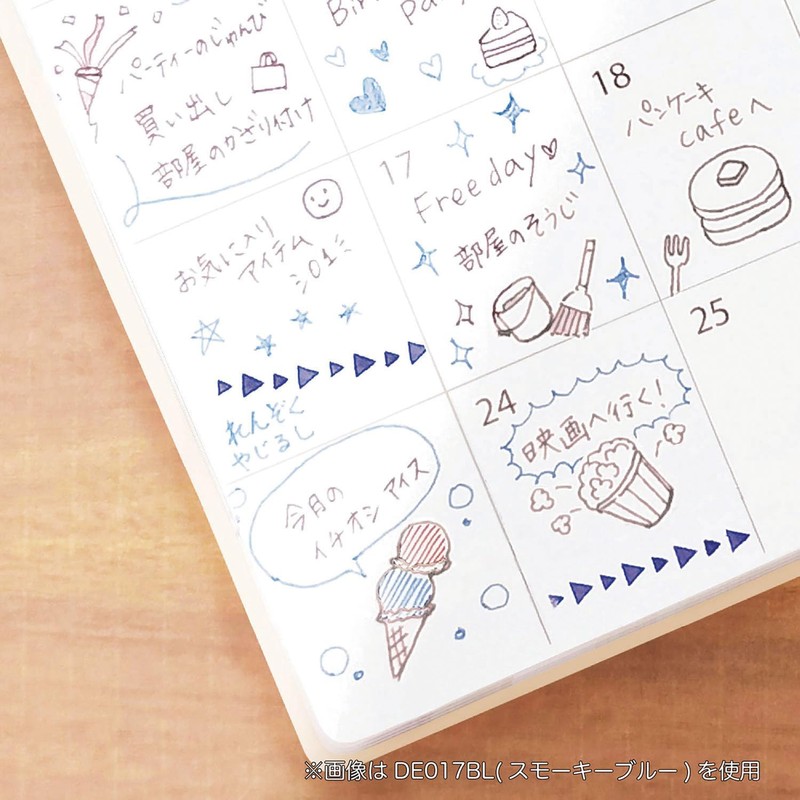 パーティーのじゅんび
買い出し
部屋のかざり付け
お気に入り
アイテム
れんぞく
やじるし
今月の
イチオシ アイス
17
Free day
部屋のそうじ
24
映画へ行く!
18
パンケーキ
cafeへ
25
※画像は DE017BL( スモーキーブルー ) を使用